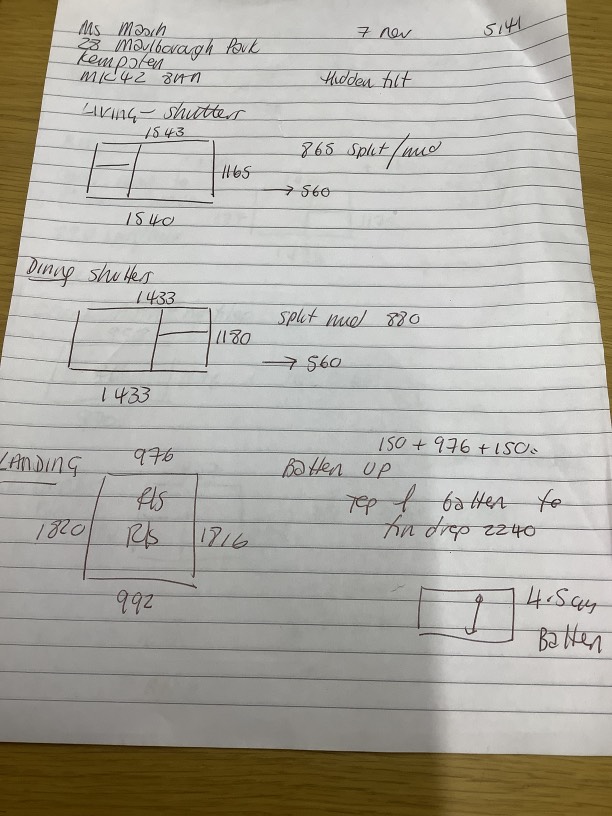 Ms Marsh 7 nov 5141
28 Marlborough Park
Kempston
MK42 8
Hidden tilt
Living - shutters
1543
865 split/mid
1165
→ 560
1540
Dining shutters
1433
split mid 880
1180
→ 560
1433
150 + 976 + 150.
LANDING
976
Batten up
R/s
Top of batten to
1820
R/s
1816
fin drop 2240
992
4.5cm
Batten